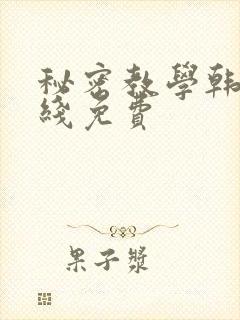 秘密教學韩
綫免費
果子漿